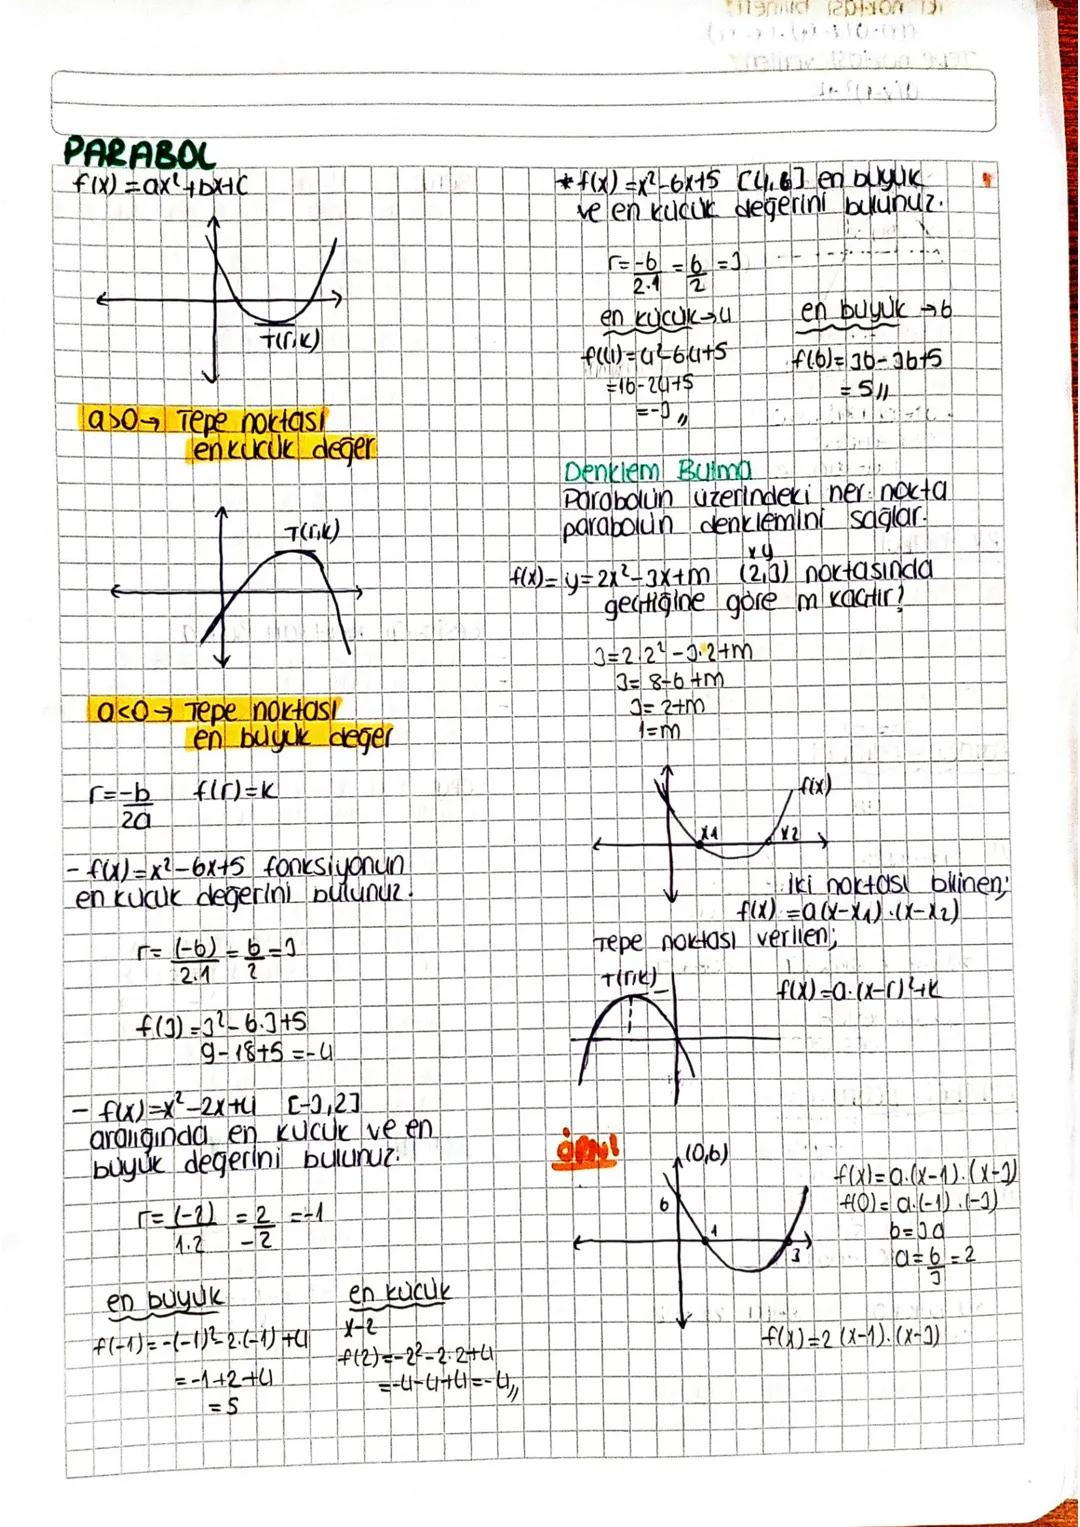 PARABOL
f(x) = ax²+bx+c
T(r,k)
a>0 → Tepe noktası
en küçük değer
T(r,k)
a<0 → Tepe noktası
en büyük değer
r=-b/2a f(r)=k
- f(x)=x²-6x+5 fonksiyonun
en küçük değerini bulunuz.
r= (-6)/2.1 = 6/2 = 3
f(3)=3²-6.3+5
9-18+5=-4
- f(x)=x²-2x+4 [-3,2]
aralığında en küçük ve en
büyük değerini bulunuz.
r= (-2)/1.2 = 2/-2 = -1
en büyük
f(-1)=-(-1)²-2.(-1)+4
=-1+2+4
=5
en küçük
x-2
f(2)=-2²-2.2+4
=-4-4+4=-4,,
* f(x)=x²-6x+5 [4,6] en büyük
ve en küçük değerini bulunuz.
r=-6/2.1 = 6/2 = 3
en küçük→4
f(4)=4²-6.4+5
=16-24+5
=-3,,
en büyük →6
f(6)=36-36+5
=5,,
Denklem Bulma
Parabolün üzerindeki her nokta
parabolün denklemini sağlar.
x y
f(x)=y=2x²-3x+m (2,3) noktasında
geçtiğine göre m kaçtır?
3=2.2²-3.2+m
3=8-6+m
3=2+m
1=m
f(x)
x1 x2
iki noktası bilinen;
f(x)=a(x-x1).(x-x2)
Tepe noktası verilen;
T(r,k)
f(x)=a.(x-r)²+k
ÖRN!
(0,6)
6
1
3
f(x)=a.(x-1).(x-3)
f(0)=a.(-1).(-3)
6=3a
a=6/3=2
f(x)=2(x-1).(x-3)